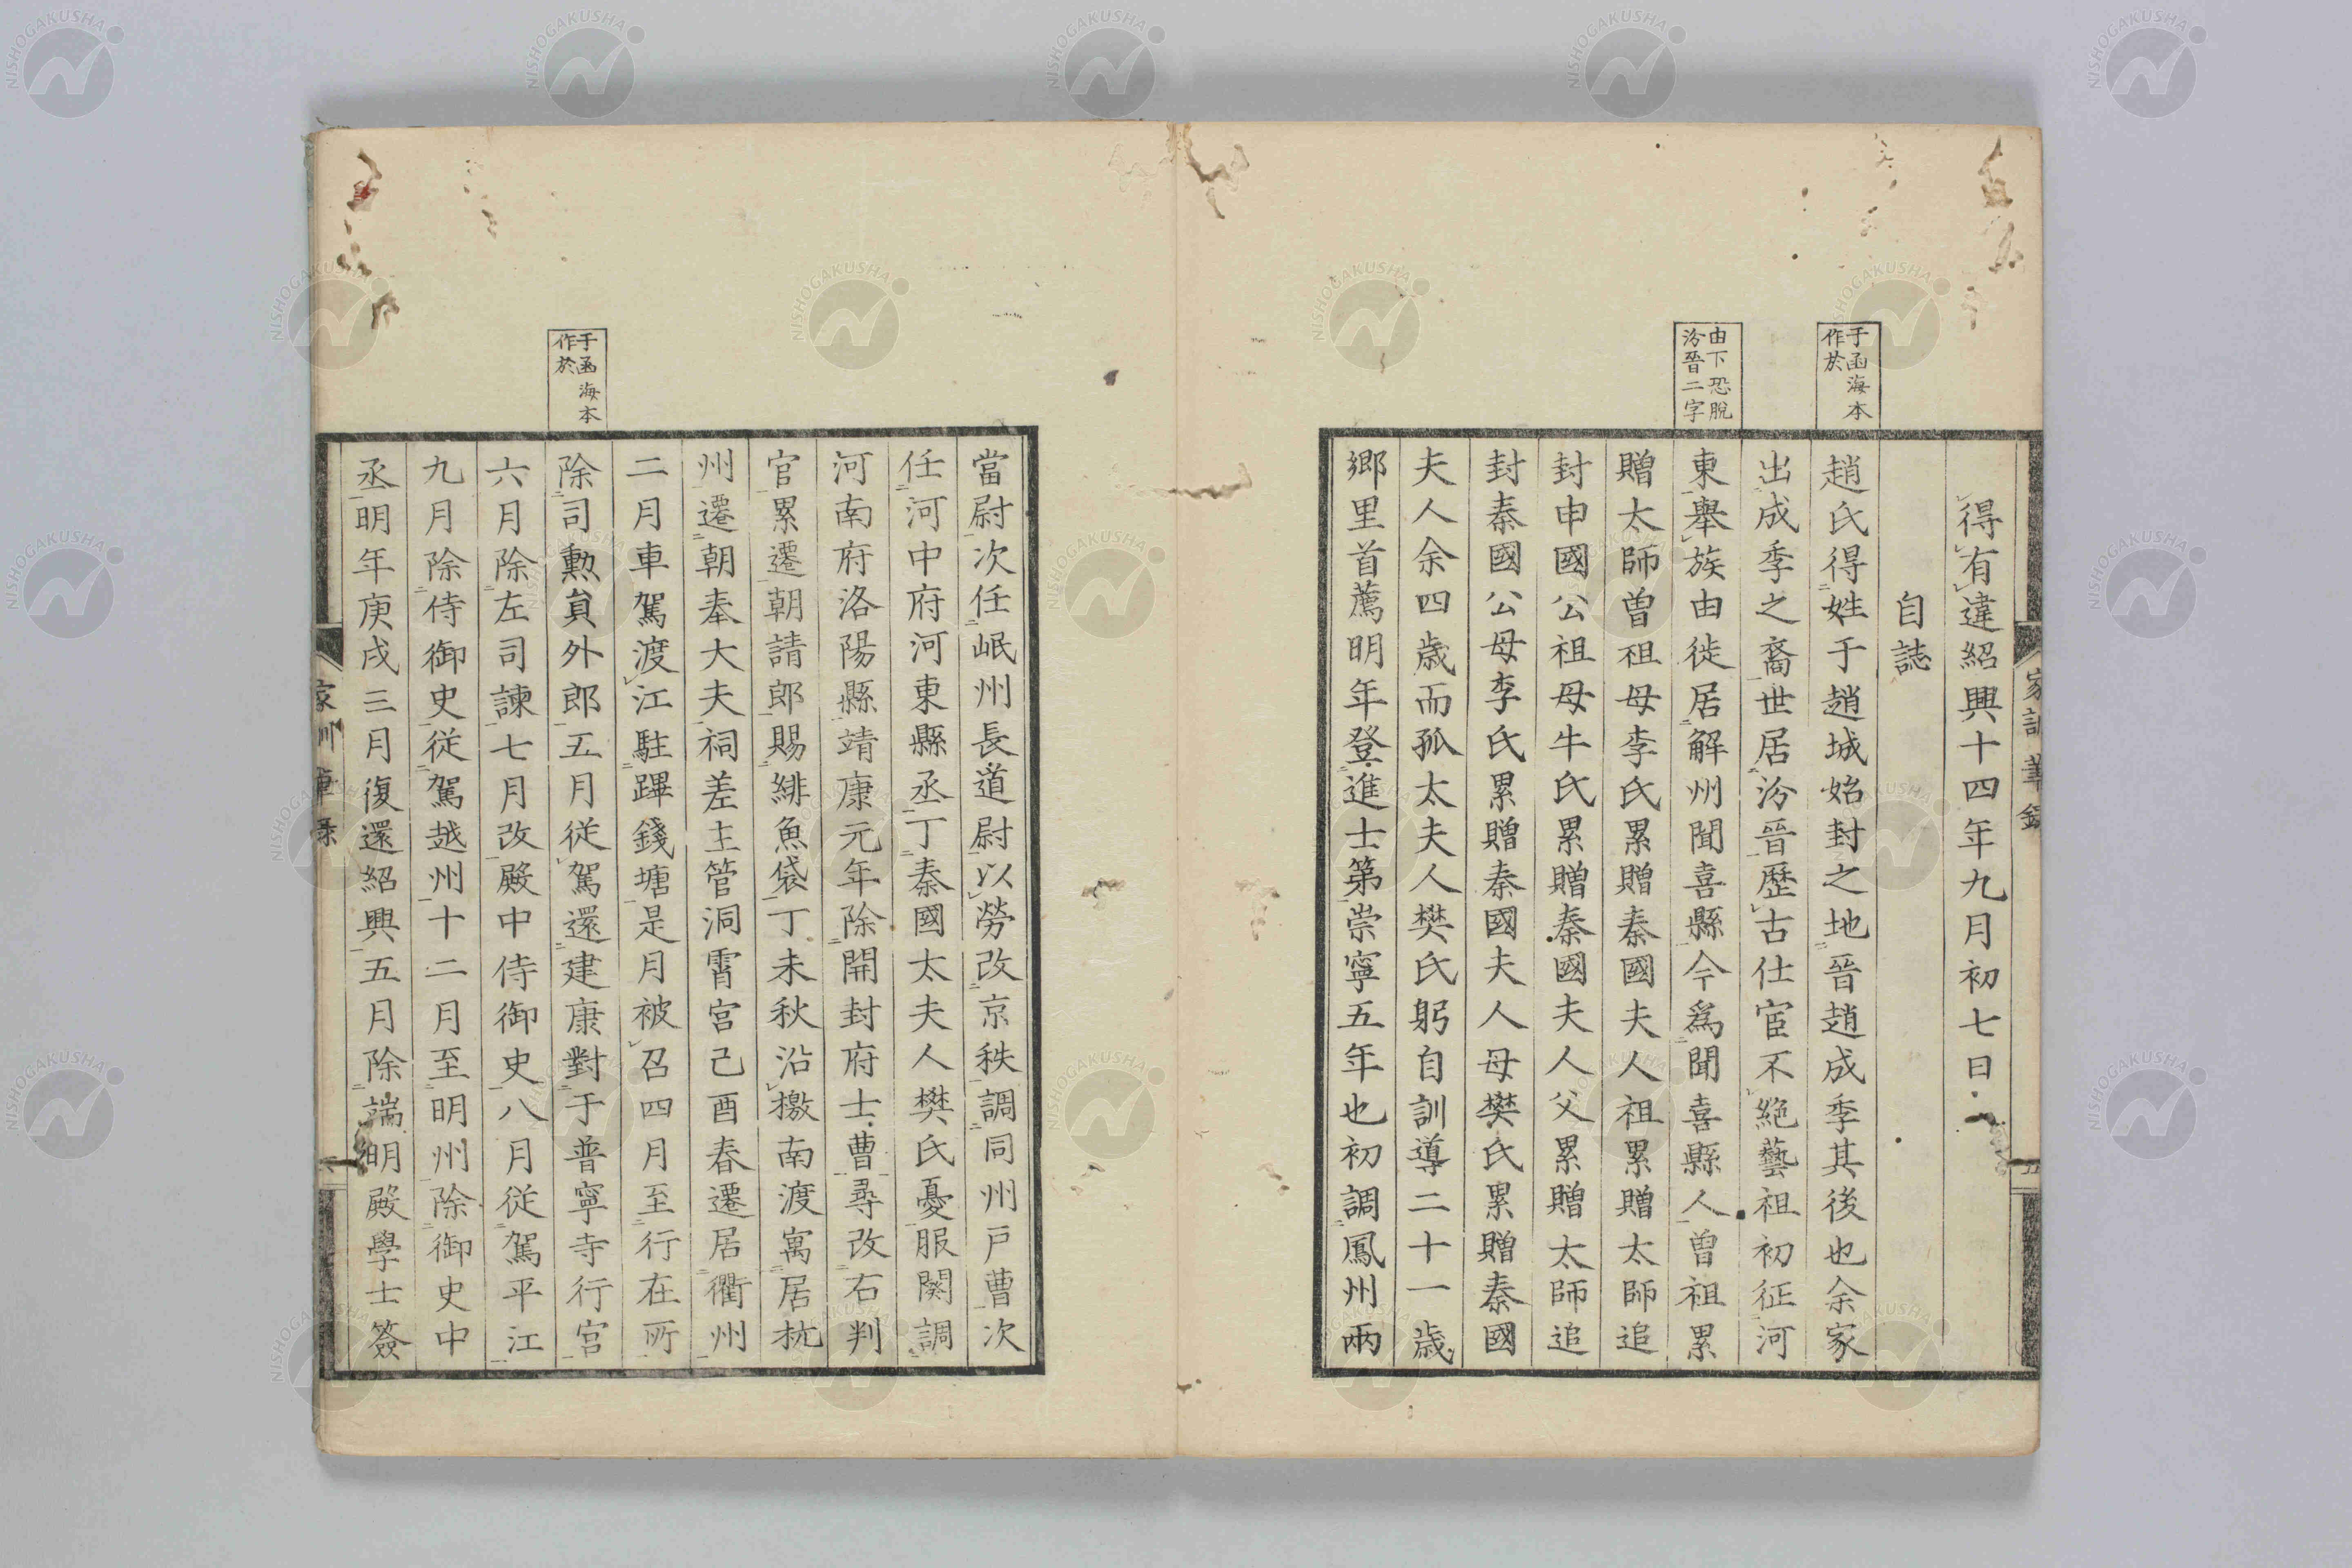 于函海本
作於
由下恐脱
汾晉二字
得有違紹興十四年九月初七日
自誌
趙氏得姓于趙城始封之地晉趙成季其後也余家
出成季之裔世居汾晉歷古仕宦不絶藝祖初征河
東舉族由徙居解州聞喜縣今爲聞喜縣人曽祖累
贈太師曽祖母李氏累贈秦國夫人祖累贈太師追
封申國公祖母牛氏累贈秦國夫人父累贈太師追
封秦國公母李氏累贈秦國夫人母樊氏累贈秦國
夫人余四歲而孤太夫人樊氏躬自訓導二十一歲
郷里首薦明年登進士第崇寧五年也初調鳳州兩
家訓筆錄
于函海本
作於
當尉次任岷州長道尉以勞改京秩調同州戸曹次
任河中府河東縣丞丁秦國太夫人樊氏憂服闋調
河南府洛陽縣靖康元年除開封府士曹尋改右判
官累遷朝請郎賜緋魚袋丁未秋沿檄南渡寓居杭
州遷朝奉大夫祠差主管洞霄宮己酉春遷居衢州
二月車駕渡江駐蹕錢塘是月被召四月至行在所
除司勲貟外郎五月従駕還建康對于普寧寺行宮
六月除左司諫七月改殿中侍御史八月従駕平江
九月除侍御史従駕越州十二月至明州除御史中
丞明年庚戌三月復還紹興五月除端明殿學士簽
家訓筆錄
NISHOGAKUSHA